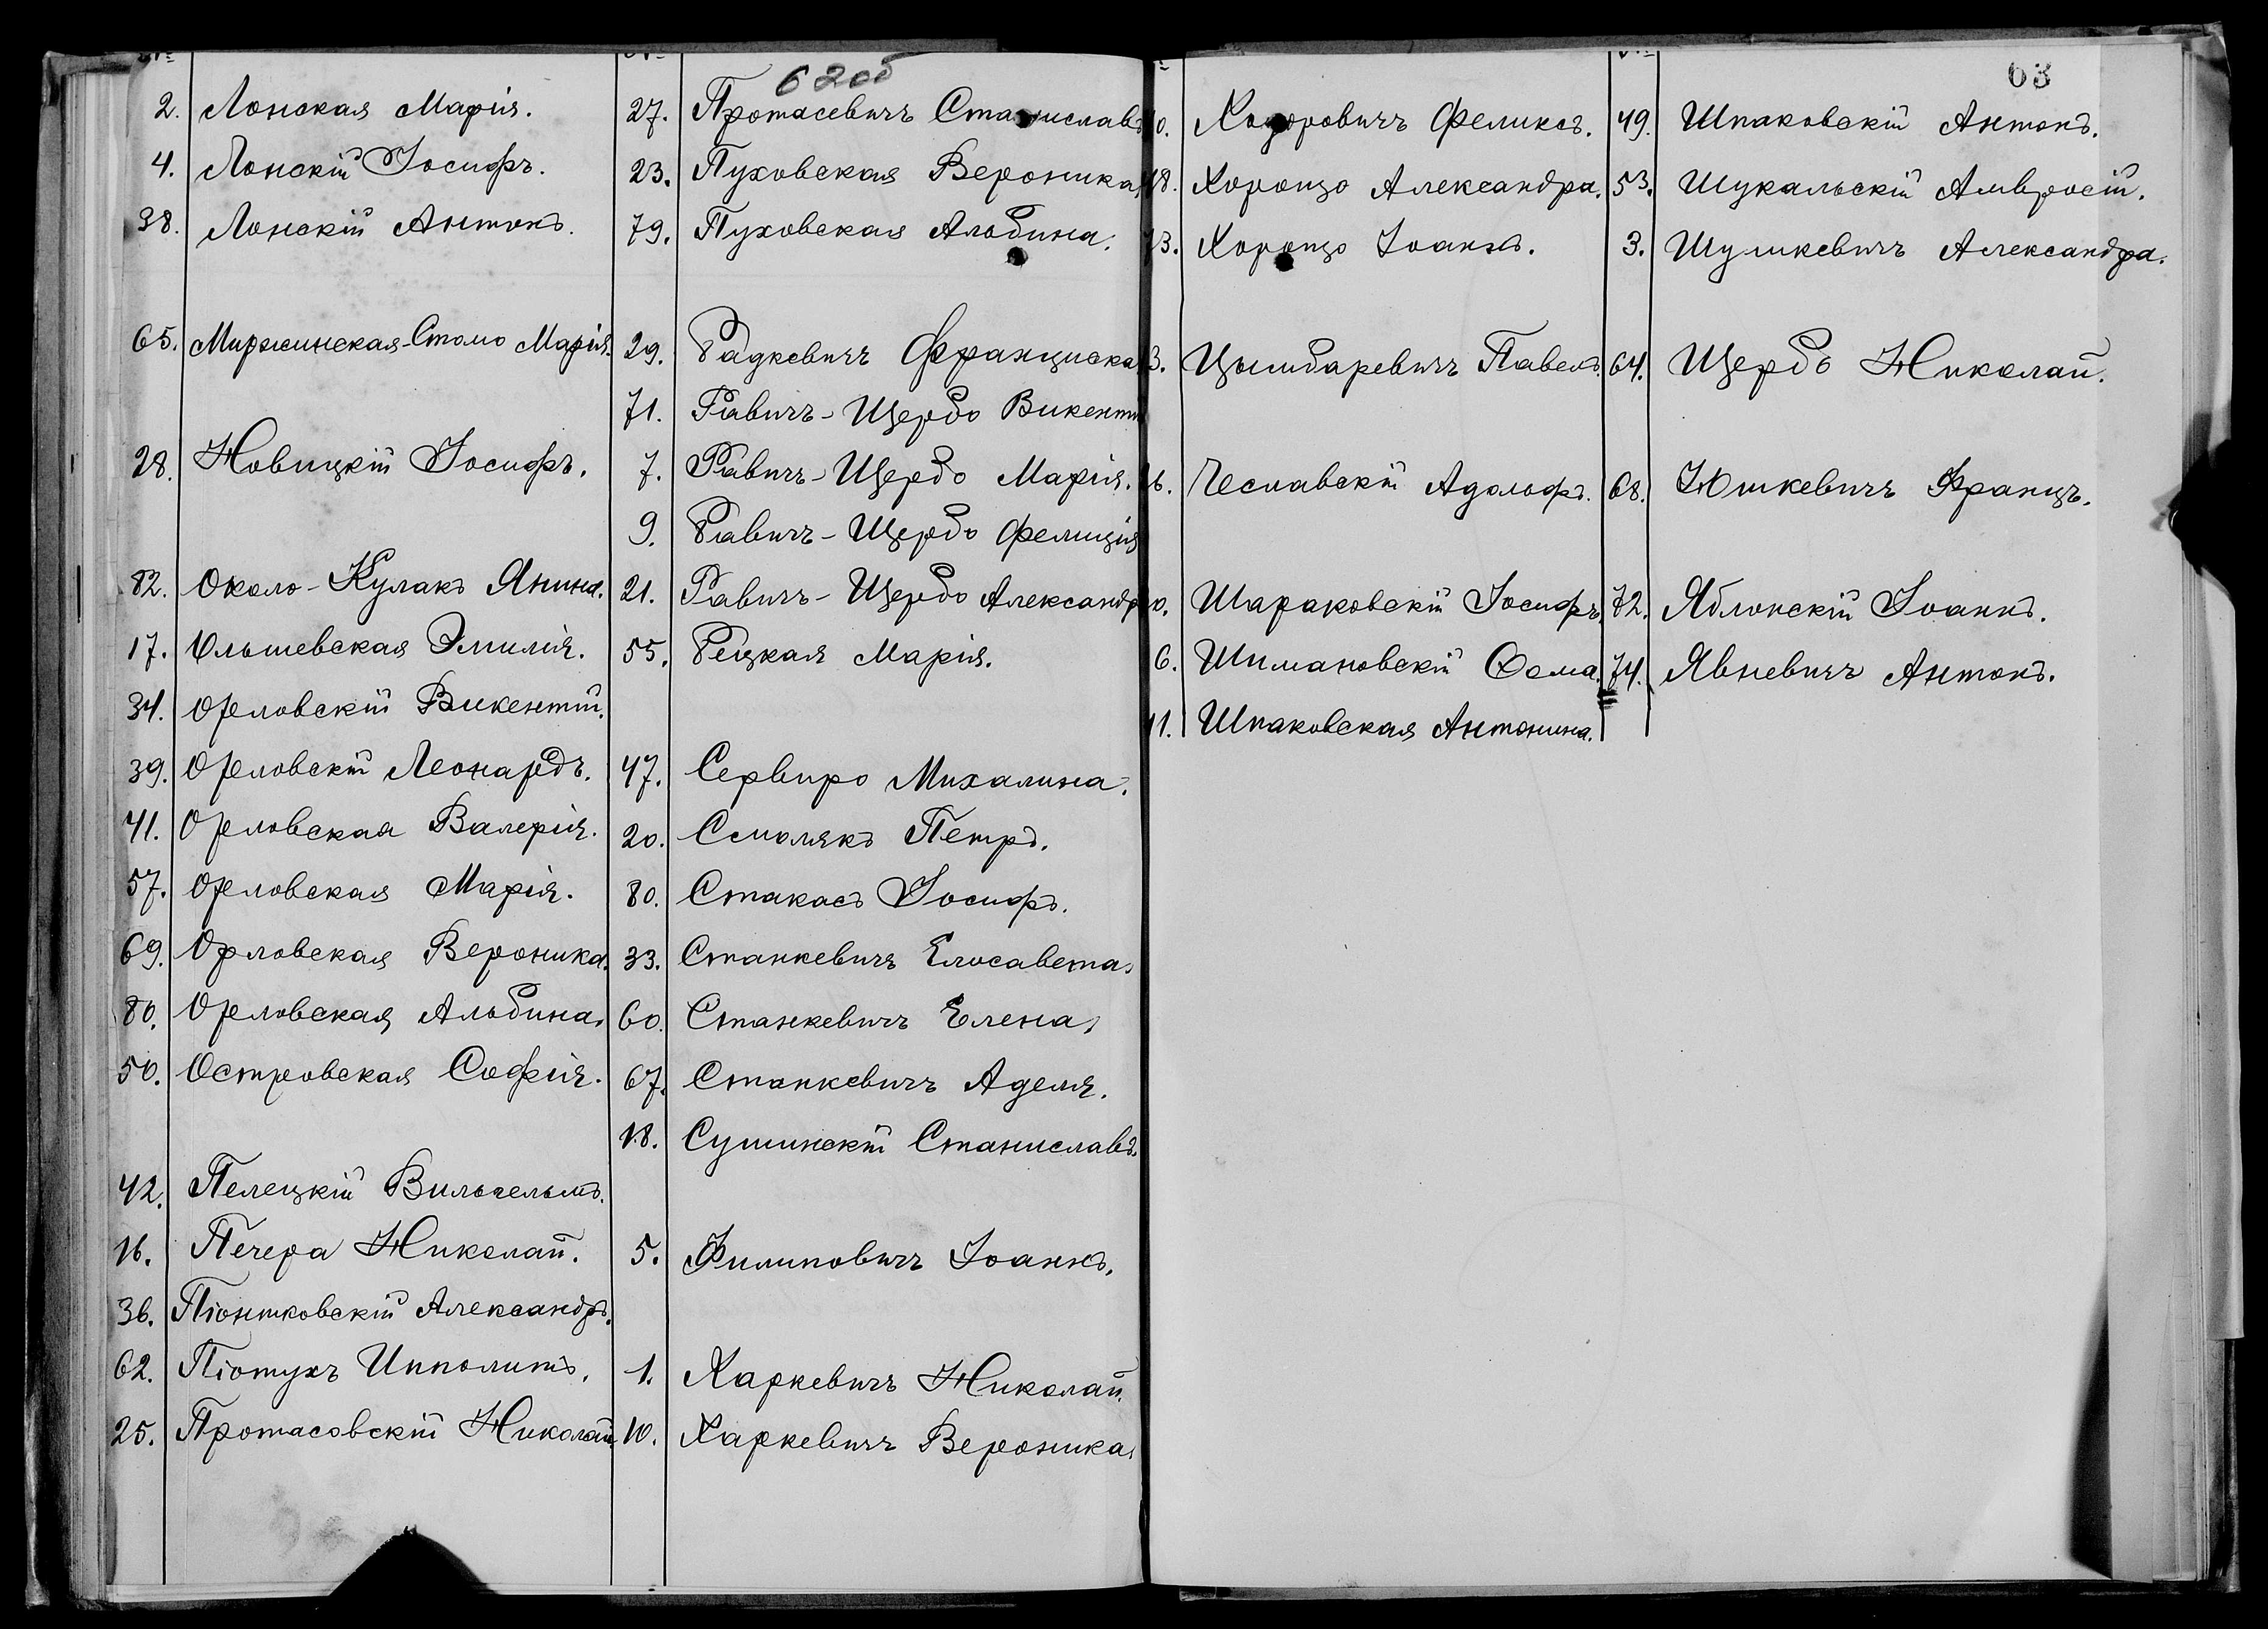 62об
2. Лонская Марія.
4. Лонскій Іосифъ.
38. Лонскій Антонъ.
65. Миржинская-Стомо Марія.
28. Новицкій Іосифъ.
82. Около-Кулакъ Янина.
17. Ольшевская Эмилія.
34. Орловскій Викентій.
39. Орловскій Леонардъ.
41. Орловская Валерія.
57. Орловская Марія.
69. Орловская Вероника.
80. Орловская Альбина.
50. Островская Софія.
42. Пелецкій Вильгельмъ.
16. Печера Николай.
36. Піонтковскій Александръ.
62. Піотухъ Ипполитъ.
25. Протасовскій Николай
27. Протасевичъ Станиславъ
23. Пуховская Вероника
79. Пуховская Альбина.
29. Радкевичъ Франциска
71. Равичъ-Щербо Викентій
7. Равичъ-Щербо Марія.
9. Равичъ-Щербо Фелиція
21. Равичъ-Щербо Александр
55. Рецкая Марія.
47. Сервиро Михалина.
20. Смолякъ Петръ.
80. Стакасъ Іосифъ.
33. Станкевичъ Елисавета.
60. Станкевичъ Елена.
67. Станкевичъ Аделя.
18. Сушинскій Станиславъ.
5. Филиповичъ Іоаннъ.
1. Харкевичъ Николай.
10. Харкевичъ Вероника
63
0. Ходоровичъ Феликсъ.
18. Хоронзо Александра.
73. Хоронзо Іоаннъ.
3. Цымбаревичъ Павелъ.
6. Чеславскій Адольфъ.
0. Шараковскій Іосифъ.
6. Шимановскій Ѳома.
11. Шпаковская Антонина.
49. Шпаковскій Антонъ.
53. Шукальскій Амвросій.
3. Шумкевичъ Александра.
64. Щербо Николай.
68. Юшкевичъ Францъ.
72. Яблонскій Іоаннъ.
74. Явневичъ Антонъ.